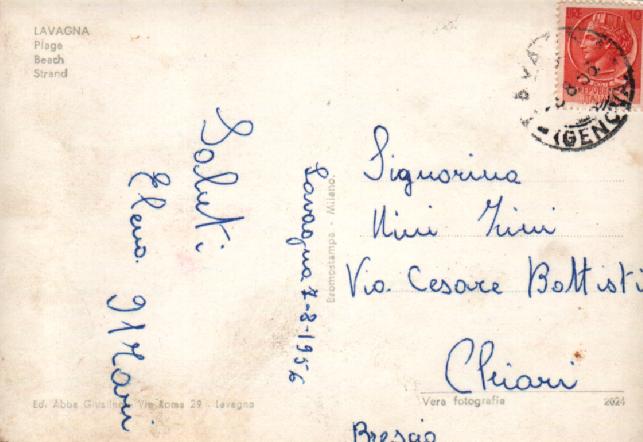 LAVAGNA
Plage
Beach
Strand
Saluti
Elena
Lavagna 7-8-1956
Bromostampa - Milano.
Signorina
Nini Zini
Via Cesare Battisti
Chiari
Brescia
(GENOVA)
Ed. Abba Giuseppe Via Roma 29 - Lavagna
Vera fotografia
2024